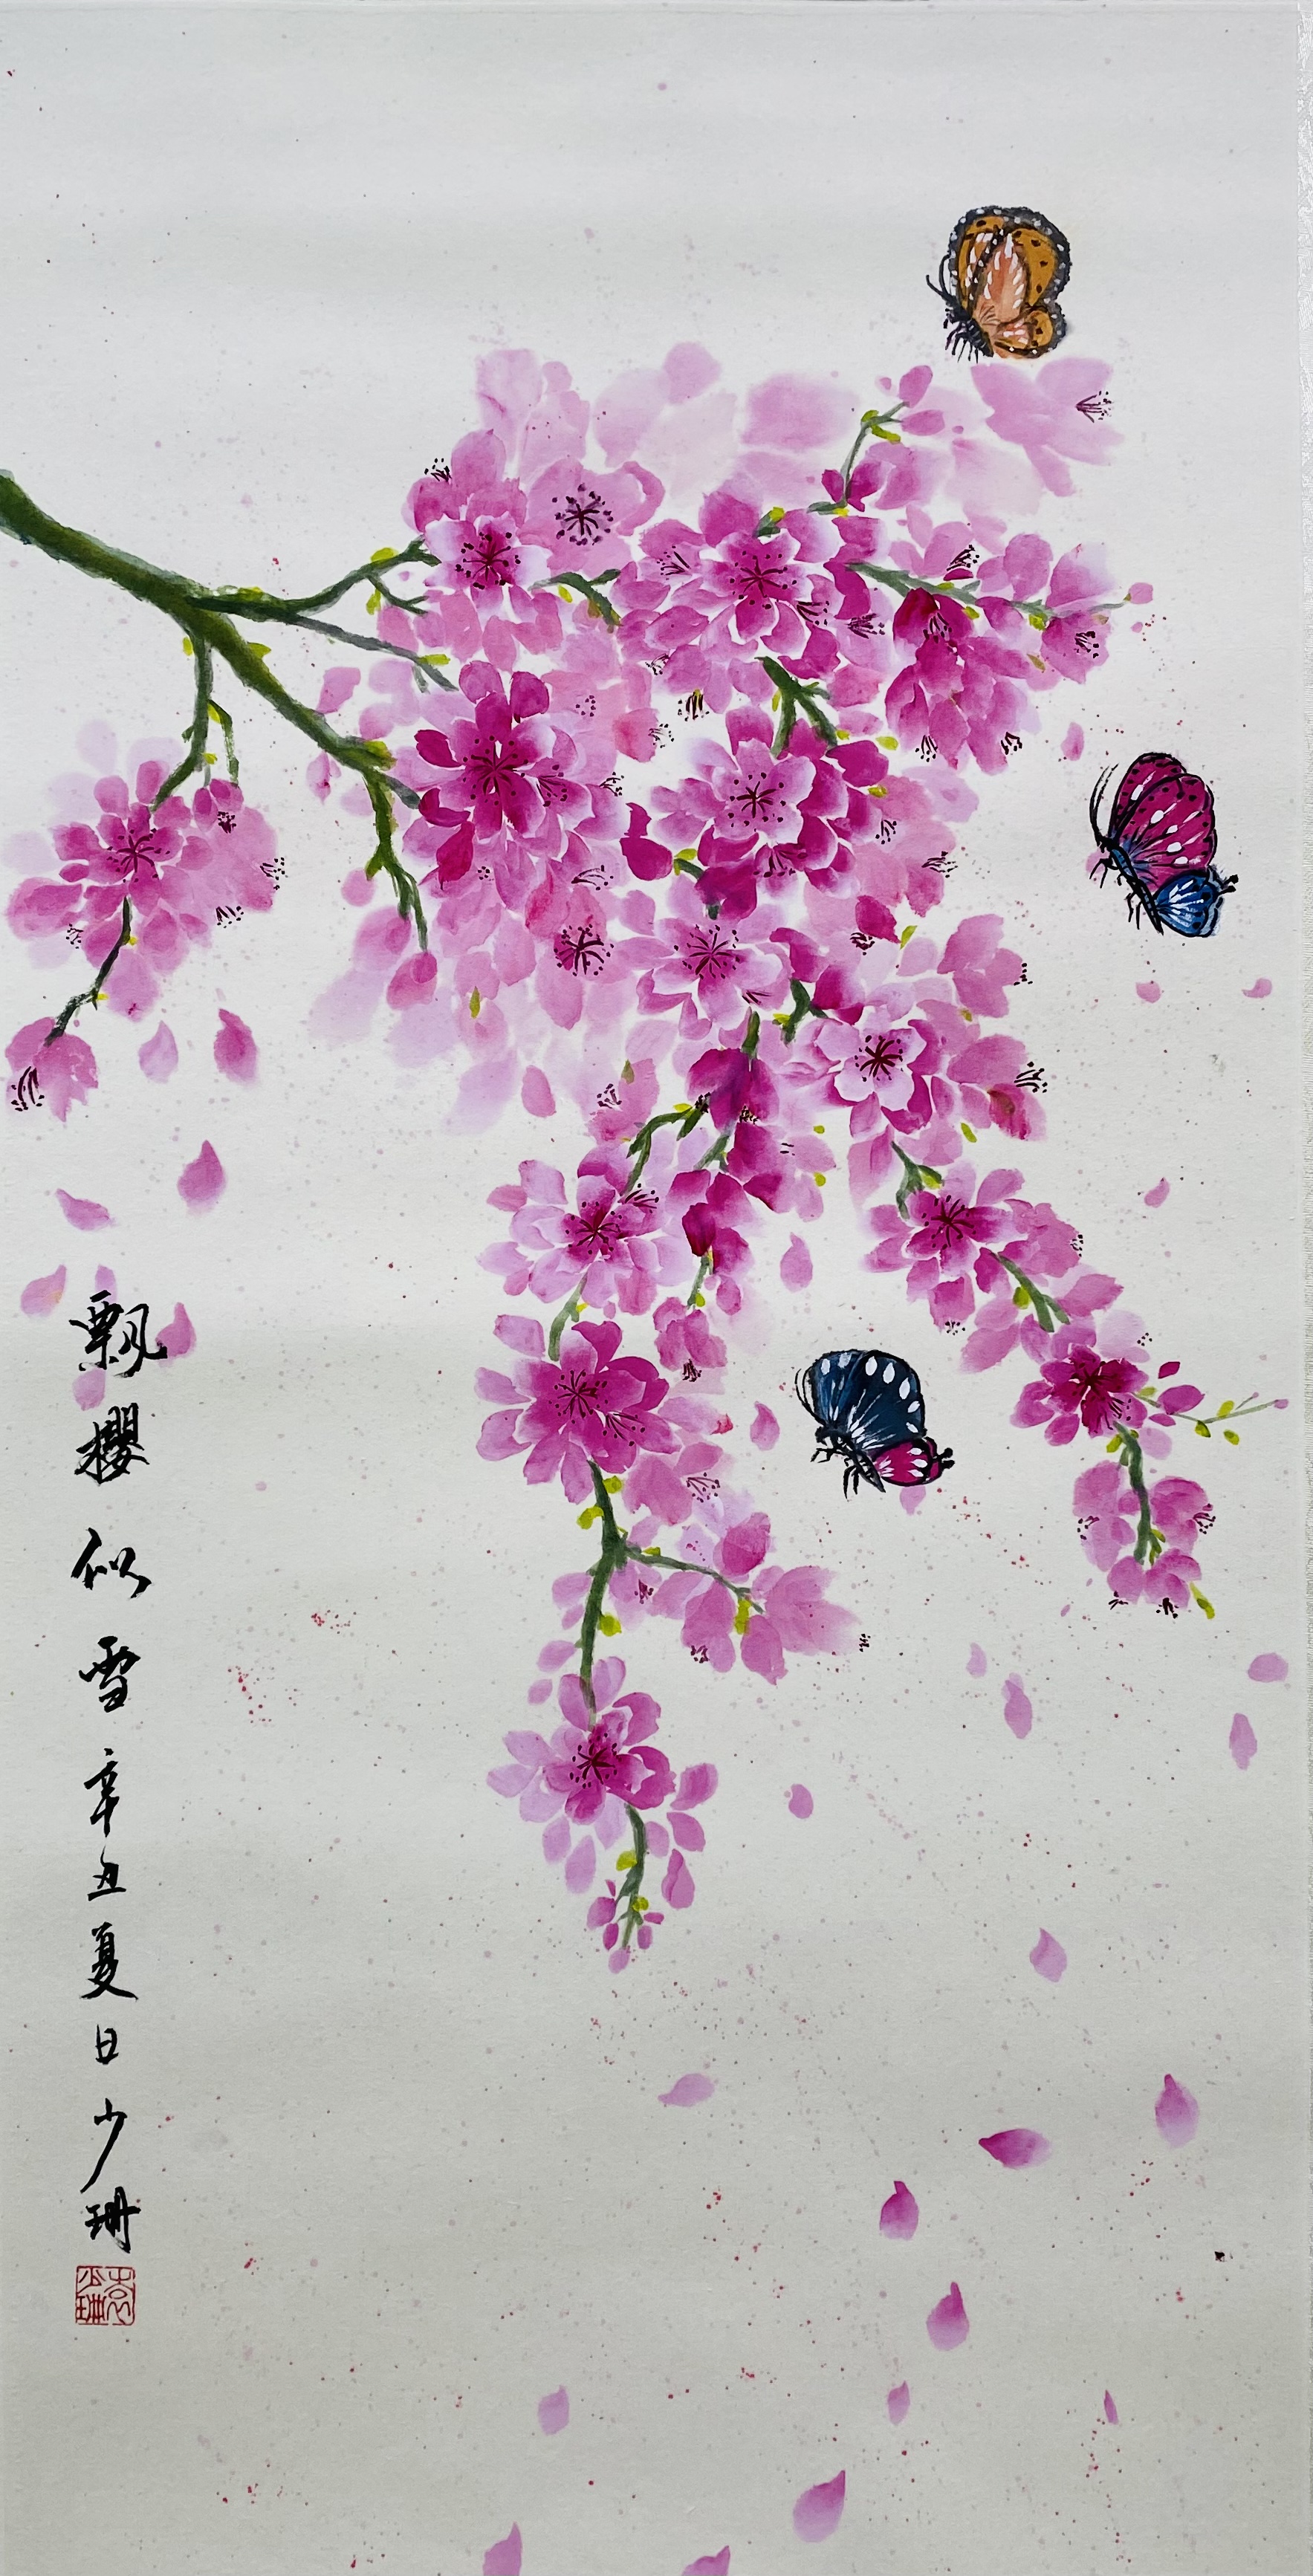 飘櫻似雪辛丑夏日少珊